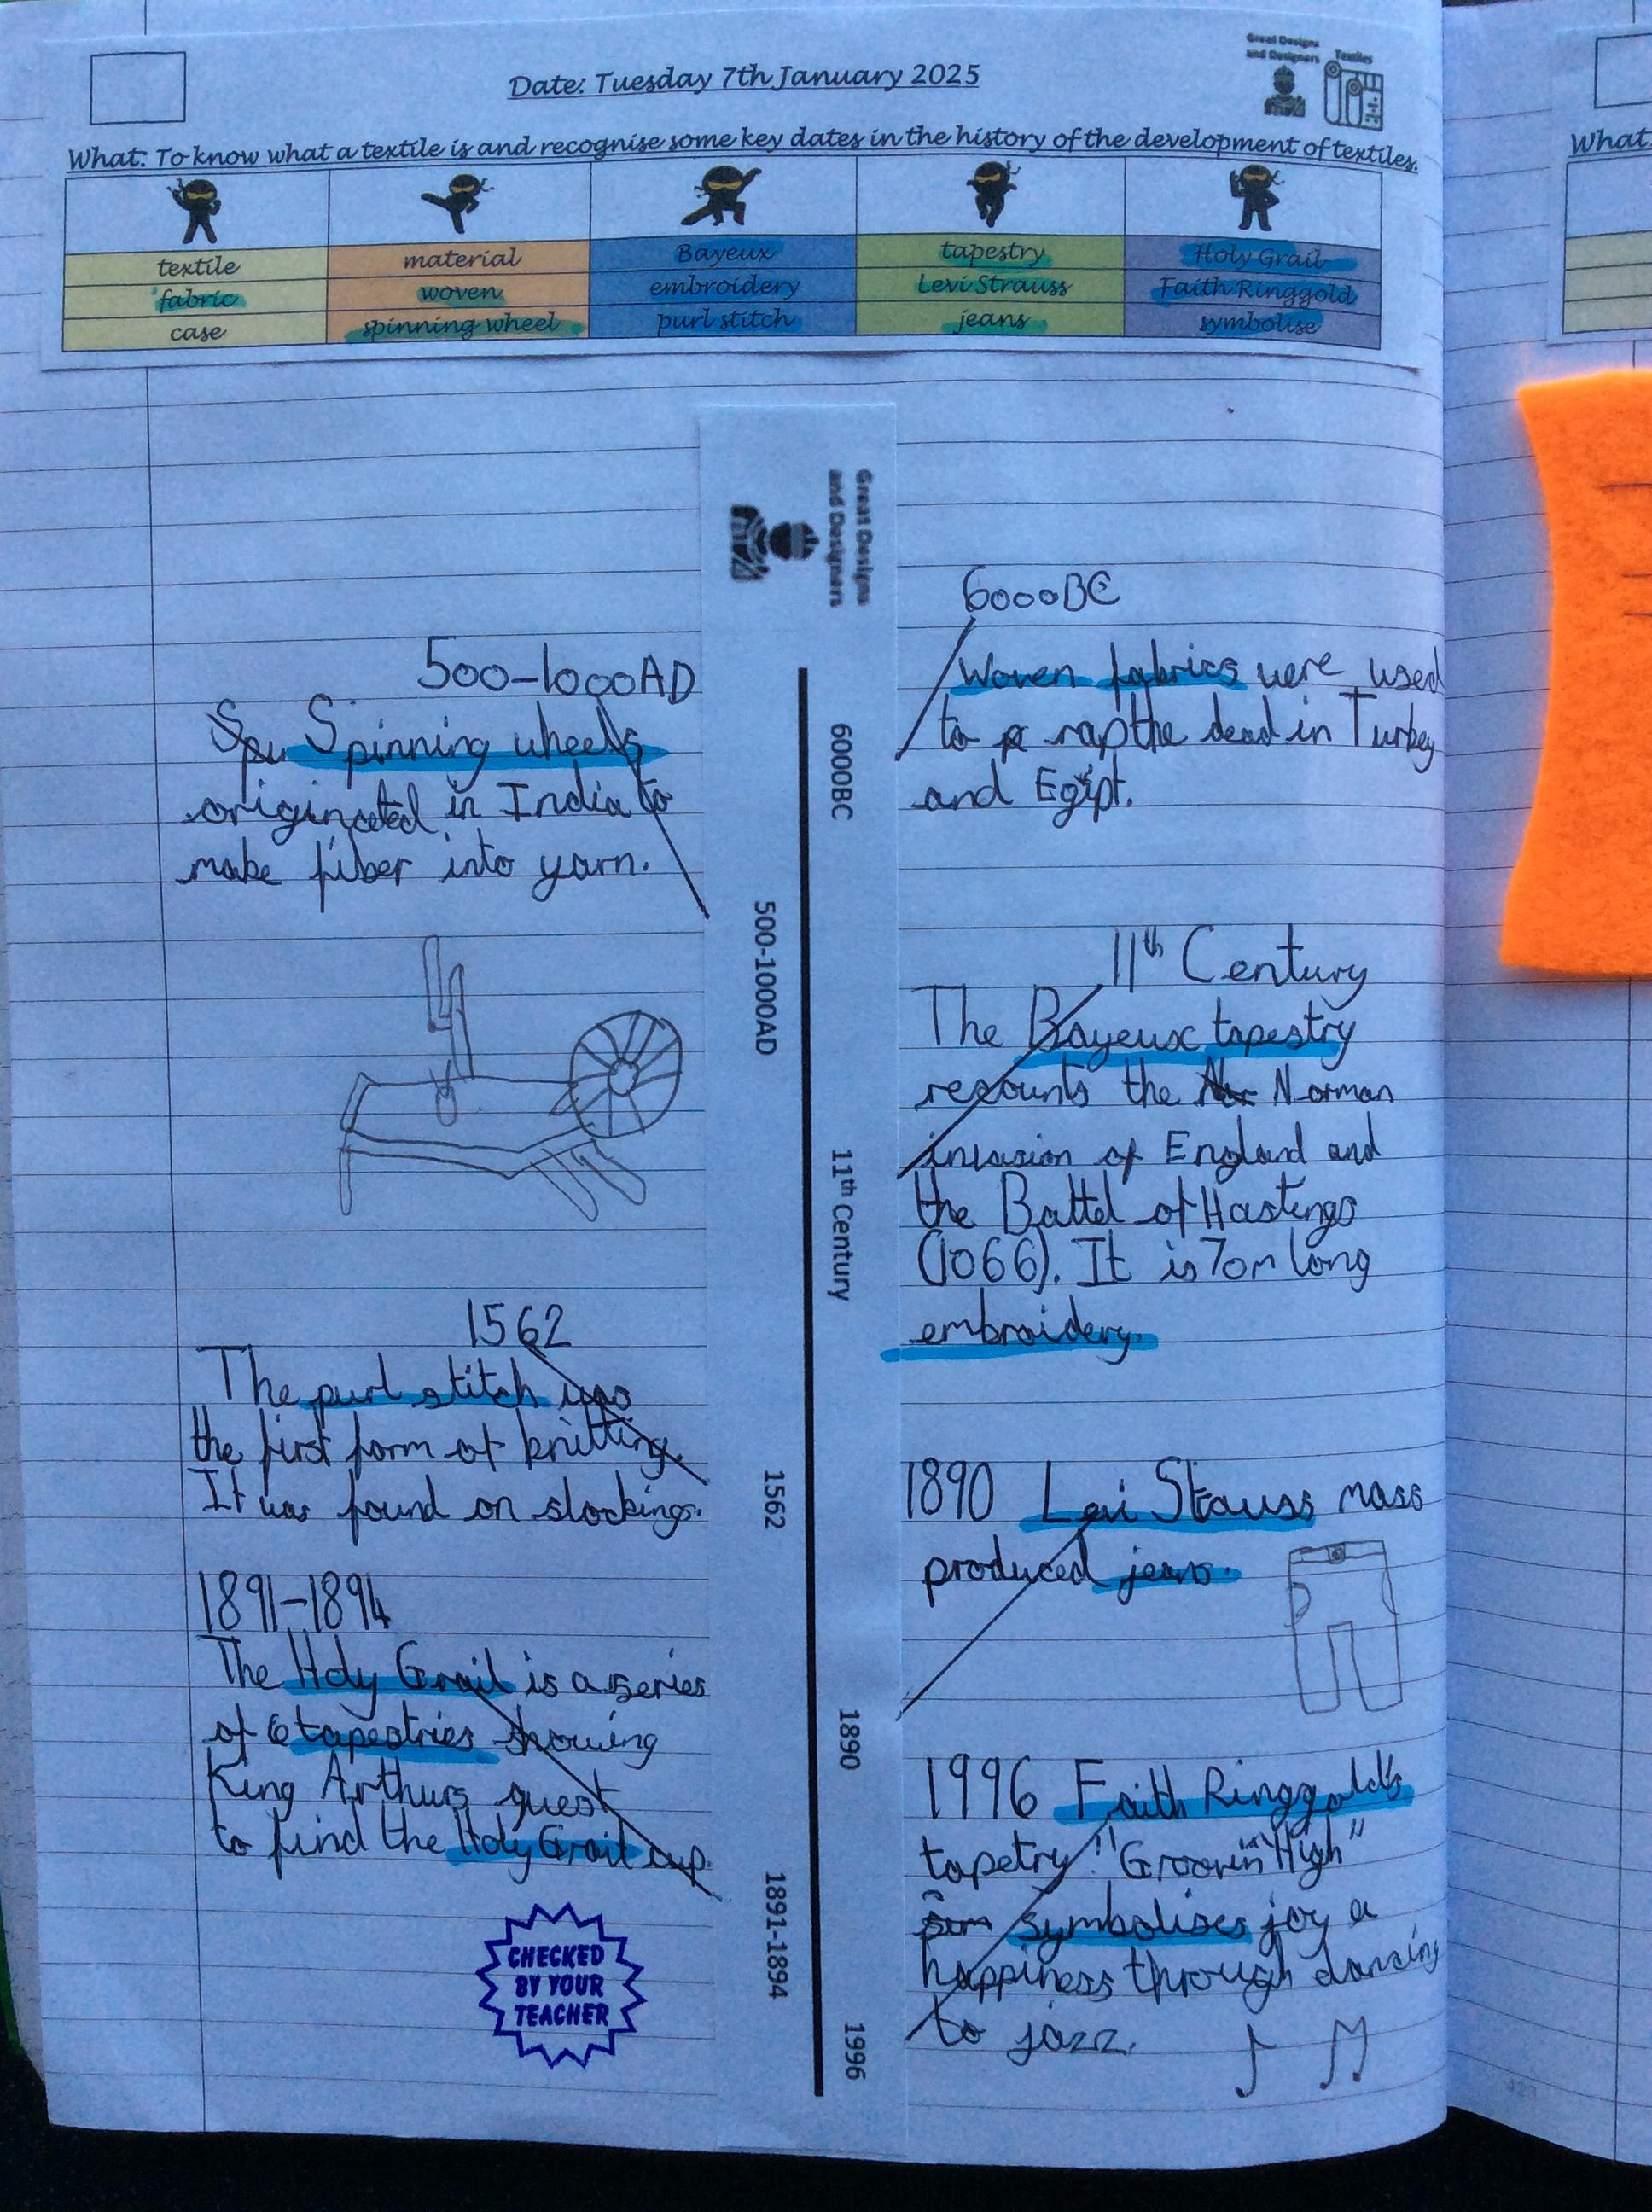 Great Designs
and Designers
Textiles
Date: Tuesday 7th January 2025
What: To know what a textile is and recognise some key dates in the history of the development of textiles.
textile material Bayeux tapestry Holy Grail
fabric woven embroidery Levi Strauss Faith Ringgold
case spinning wheel purl stitch jeans symbolise
What:
Great Designs
and Designers
6000BC
500-1000AD
11th Century
1562
1890
1891-1894
1996
6000BC
Woven fabrics were used
to rap the dead in Turkey
and Egipt.
500-1000AD
Spu Spinning wheels
originated in India to
make fiber into yarn.
11th Century
The Bayeux tapestry
recounts the Nor Norman
invasion of England and
the Battel of Hastings
(1066). It is 70m long
embroidery.
1562
The purl stitch was
the first form of knitting.
It was found on stockings.
1890 Levi Strauss mass
produced jeans.
1891-1894
The Holy Grail is a series
of 6 tapestries showing
King Arthurs quest
to find the Holy Grail cup.
1996 Faith Ringgold's
tapetry "Groovin High"
symbolises joy a
happiness through dancing
to jazz.
CHECKED
BY YOUR
TEACHER